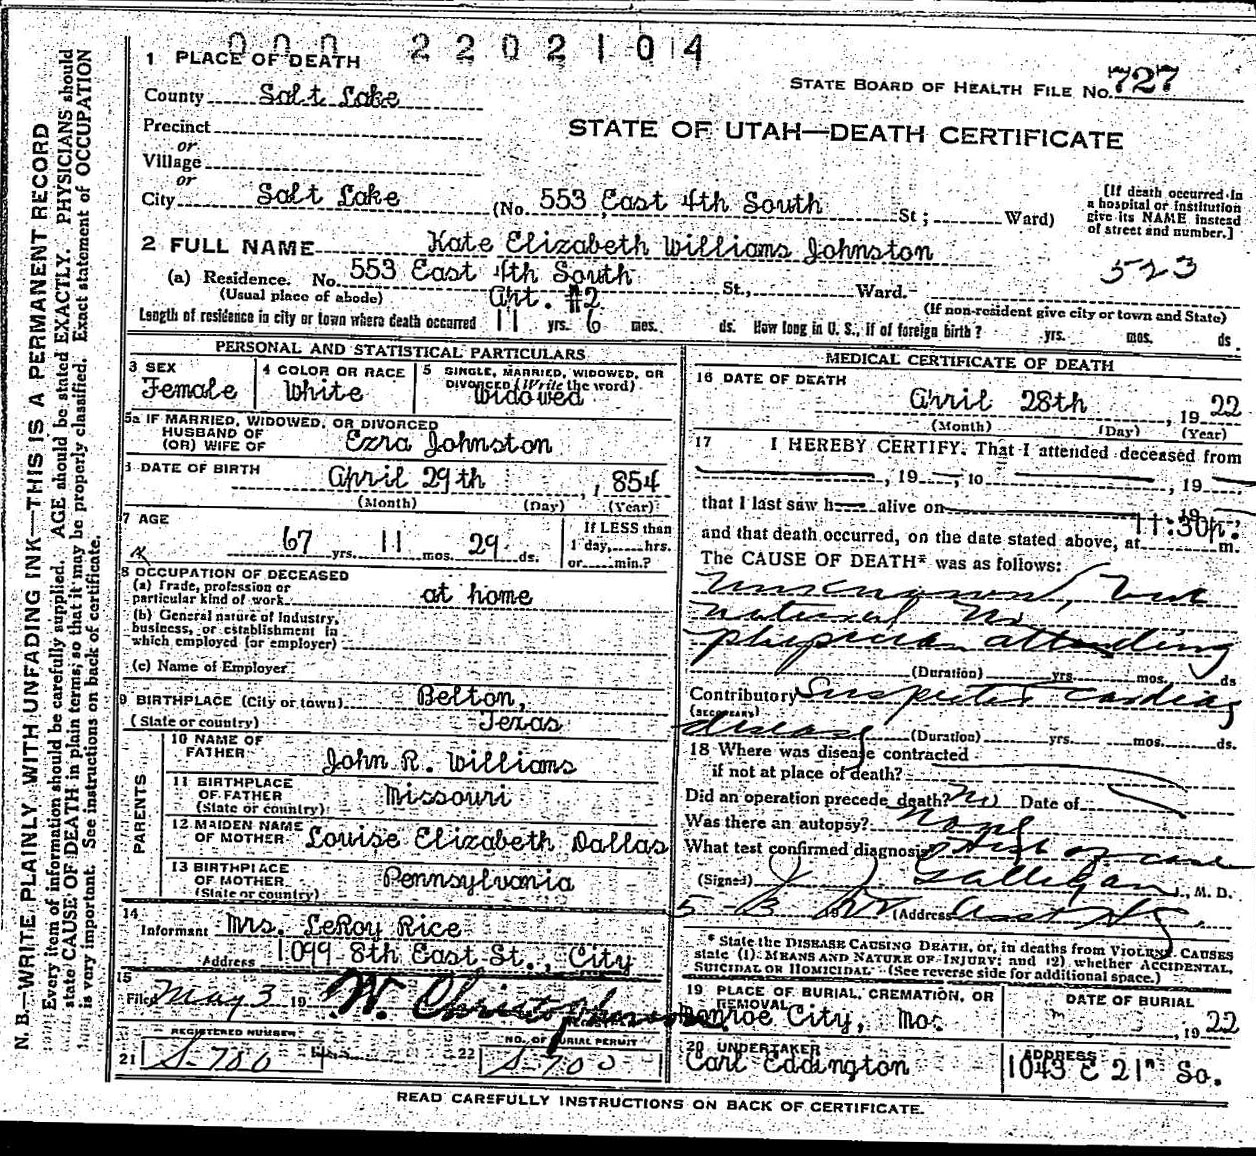 000 2202104
1 PLACE OF DEATH
STATE BOARD OF HEALTH FILE NO. 727
County Salt Lake
STATE OF UTAH—DEATH CERTIFICATE
Precinct
or
Village
or
City Salt Lake (No. 553 East 4th South St; Ward)
[If death occurred in
a hospital or institution
give its NAME instead
of street and number.]
2 FULL NAME Kate Elizabeth Williams Johnston
523
(a) Residence. No. 553 East 4th South St., Ward.
(Usual place of abode) Apt. #2 (If non-resident give city or town and State)
Length of residence in city or town where death occurred 11 yrs. 6 mos. ds. How long in U. S., if of foreign birth? yrs. mos. ds.
PERSONAL AND STATISTICAL PARTICULARS
3 SEX
Female
4 COLOR OR RACE
White
5 SINGLE, MARRIED, WIDOWED, OR
DIVORCED (Write the word)
Widowed
5a IF MARRIED, WIDOWED, OR DIVORCED
HUSBAND OF
(OR) WIFE OF Ezra Johnston
6 DATE OF BIRTH
April 29th, 1854
(Month) (Day) (Year)
7 AGE
67 yrs. 11 mos. 29 ds.
If LESS than
1 day, hrs.
or min.?
8 OCCUPATION OF DECEASED
(a) Trade, profession or
particular kind of work at home
(b) General nature of Industry,
business, or establishment in
which employed (or employer)
(c) Name of Employer
9 BIRTHPLACE (City or town) Belton,
(State or country) Texas
PARENTS
10 NAME OF
FATHER John R. Williams
11 BIRTHPLACE
OF FATHER Missouri
(State or country)
12 MAIDEN NAME
OF MOTHER Louise Elizabeth Dallas
13 BIRTHPLACE
OF MOTHER Pennsylvania
(State or country)
14
Informant Mrs. LeRoy Rice
Address 1099 8th East St., City
15
Filed May 3 19 W. Christophersen
REGISTERED NUMBER
21 S-700
NO. OF BURIAL PERMIT
22 S-700
MEDICAL CERTIFICATE OF DEATH
16 DATE OF DEATH
April 28th, 1922
(Month) (Day) (Year)
17 I HEREBY CERTIFY, That I attended deceased from
, 19 , to , 19
that I last saw h alive on 19
and that death occurred, on the date stated above, at 11:30p. m.
The CAUSE OF DEATH* was as follows:
Unknown, but
natural No
physician attending
(Duration) yrs. mos. ds
Contributory Suspected cardiac
(SECONDARY)
disease (Duration) yrs. mos. ds.
18 Where was disease contracted
if not at place of death?
Did an operation precede death? No Date of
Was there an autopsy? none
What test confirmed diagnosis? Hist of case
(Signed) Galligan, M. D.
5-3 1922 (Address
* State the DISEASE CAUSING DEATH, or, in deaths from VIOLENT CAUSES
state (1) MEANS AND NATURE OF INJURY; and (2) whether ACCIDENTAL,
SUICIDAL or HOMICIDAL (See reverse side for additional space.)
19 PLACE OF BURIAL, CREMATION, OR
REMOVAL
Monroe City, Mo.
DATE OF BURIAL
1922
20 UNDERTAKER
Carl Eddington
ADDRESS
1043 E 21st So.
READ CAREFULLY INSTRUCTIONS ON BACK OF CERTIFICATE.
N. B.—WRITE PLAINLY WITH UNFADING INK—THIS IS A PERMANENT RECORD
Every item of information should be carefully supplied. AGE should be stated EXACTLY. PHYSICIANS should
state CAUSE OF DEATH in plain terms, so that it may be properly classified. Exact statement of OCCUPATION
is very important. See instructions on back of certificate.